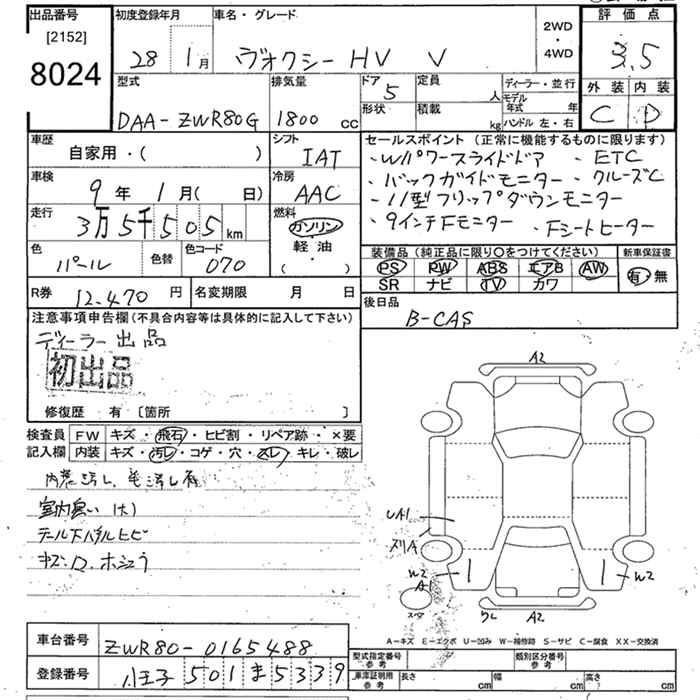 出品番号
[2152]
8024
初度登録年月
28 1月
車名・グレード
ヴォクシー HV V
2WD
・
4WD
評価点
3.5
外装 内装
C D
型式
DAA-ZWR80G
排気量
1800 cc
ドア
5
形状
定員
人
積載
kg
ディーラー・並行
モデル
年式 年
ハンドル 左・右
車歴
自家用・( )
シフト
IAT
車検
9年 1月( 日)
冷房
AAC
走行
3万5千505km
燃料
ガソリン
軽油
( )
色
パール
色替
色コード
070
R券
12,470円
名変期限
月 日
セールスポイント (正常に機能するものに限ります)
・Wパワースライドドア ・ETC
・バックガイドモニター ・クルーズC
・11型フリップダウンモニター
・9インチFモニター ・Fシートヒーター
装備品 (純正品に限り○をつけてください)
PS PW ABS エアB AW
SR ナビ TV カワ
新車保証書
有・無
後日品
B-CAS
注意事項申告欄 (不具合内容等は具体的に記入して下さい)
ディーラー出品
初出品
修復歴 有 〔箇所 〕
検査員
記入欄
FW キズ・飛石・ヒビ割・リペア跡・×要
内装 キズ・汚レ・コゲ・穴・スレ・キレ・破レ
室内臭い (大)
A2
UA1
W2
A1
W2
A2
A-キズ E-エクボ U-凹み W-補修跡 S-サビ C-腐食 XX-交換済
車台番号
ZWR80-0165488
登録番号
八王子 501 ま 5339
型式指定番号
参考
類別区分番号
参考
車庫証明用
参考
長さ cm
幅 cm
高さ cm